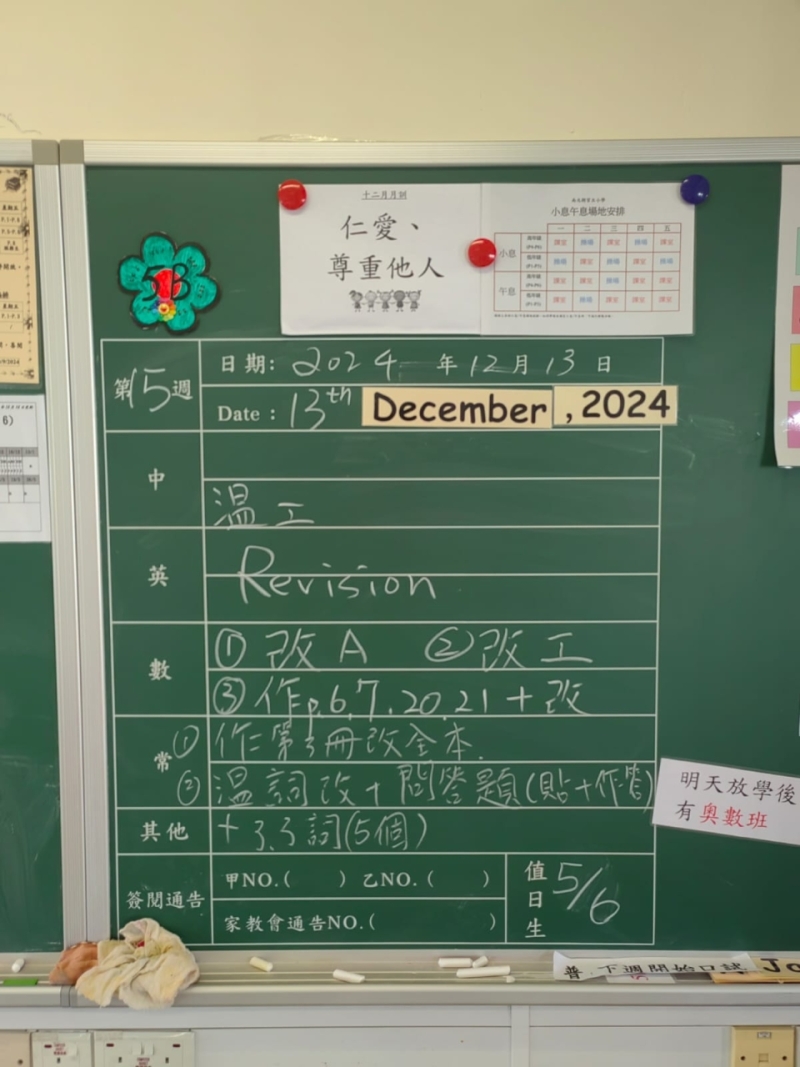 十二月月訓
仁愛、
尊重他人
小息午息場地安排
一 二 三 四 五
小息
課室 操場 課室 操場 課室
操場 課室 操場 課室 操場
午息
課室 操場 課室 課室 課室
5B
第15週
日期: 2024 年12月13日
Date : 13th December , 2024
中
溫工
英
Revision
數
① 改A ②改工
③作p.6.7.20.21+改
常
① 作二第3冊改全本.
② 溫詞改+問答題(貼+作答)
其他
+3.3詞(5個)
簽閱通告
甲NO.( ) 乙NO.( )
家教會通告NO.( )
值日生
5/6
明天放學後
有奧數班
普 下週開始口試